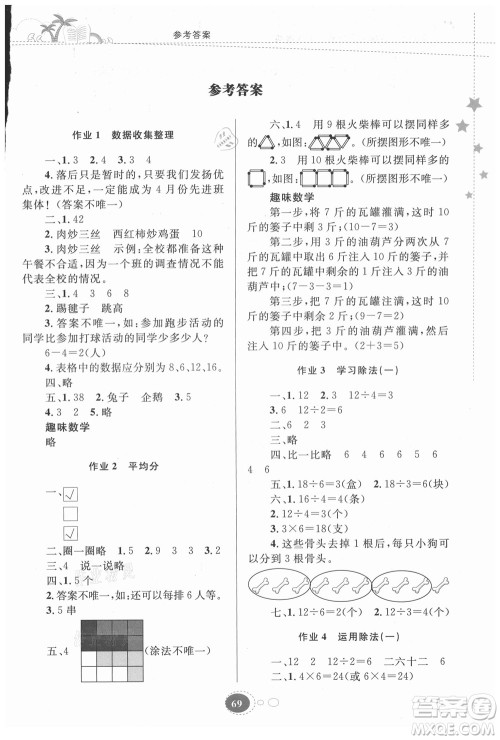 参考答案
参考答案
作业 1 数据收集整理
一、1.3 2.3 3.4
4.落后只是暂时的,只要我们发扬优
点,改进不足,就能成为 4 月份先进班
集体!(答案不唯一)
二、1.42
2.肉炒三丝 西红柿炒鸡蛋 10
3.肉炒三丝 示例:全校都有这种
午餐不合适,因为二(1)班的情况不能
代表全校的情况。
三、1.4 3 6 8
2.踢毽子 跳高
3.答案不唯一,如:参加跑步活动的
同学比参加打球活动的同学少多少人?
6-4=2(人)
4.表格中的数据应分别为 8,6,9,6。
四、略
五、1.38 2.兔子 企鹅 3.2
4.3 5.略
趣味数学
略
作业 2 平均分
一、
二、圈一圈略 1.5 2.9 3.3
三、4 说一说略
四、1.5 个
2.答案不唯一,如:可以每份放 9 串
3.5 串
五、4 (涂法不唯一)
六、1.4 用 9 根火柴棒可以摆同样多
的,如图: (所摆图形不唯一)
2.3 用 10 根火柴棒可以摆同样多
的,如图: (所摆图形不唯一)
趣味数学
第一步,将 7 斤的瓦罐灌满,这时 10
斤的篓子中剩 3 斤。(10-7=3)
第二步,用 3 斤的油葫芦分两次从
瓦罐中倒出 6 斤注入 10 斤的篓子中,这
时 7 斤的瓦罐中剩余的 1 斤注入 3 斤的
油葫芦中。(7-3-3=1)
第三步,把 7 斤的瓦罐灌满,从中倒
出 2 斤把 3 斤的油葫芦灌满。(3-1=2)
第四步,把 3 斤的油葫芦中的油注
入 10 斤的篓子中。(2+3=5)
作业 3 学习除法(一)
一、1.2 2.4 3 12÷4=3
3.6 12÷2=6 4.3 12÷4=3
二、略
三、略
四、比一比略 6 4 6 6 6 6
4 6
五、1.18÷6=3(盒) 2.18÷6=3(块)
六、1.12÷4=3(个)
2.12÷6=2(个)
3.3×6=18(个)
4.这些骨头去掉 1 根后,每只小狗可
以分到 3 根骨头。
七、1.12÷6=2(个) 2.12÷3=4(个)
作业 4 运用除法(一)
一、12 12 2 二六十二 6 2
二、1.4×6=24(个) 2.4×6=24(人)
69
答案圈